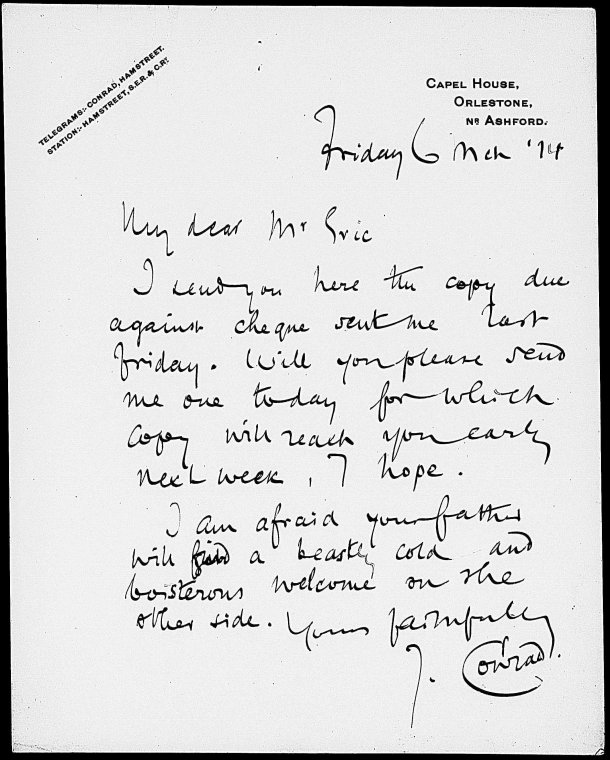 TELEGRAMS:- CONRAD, HAMSTREET.
STATION:- HAMSTREET, S.E.R. & C.RY.
CAPEL HOUSE,
ORLESTONE,
NR ASHFORD.
Friday 6 Mch '14
My dear Mr Eric
I send you here the copy due
against cheque sent me last
Friday. Will you please send
me one to day for which
copy will reach you early
next week, I hope.
I am afraid your father
will find a beastly cold and
boisterous welcome on the
other side. Yours faithfully
J. Conrad.